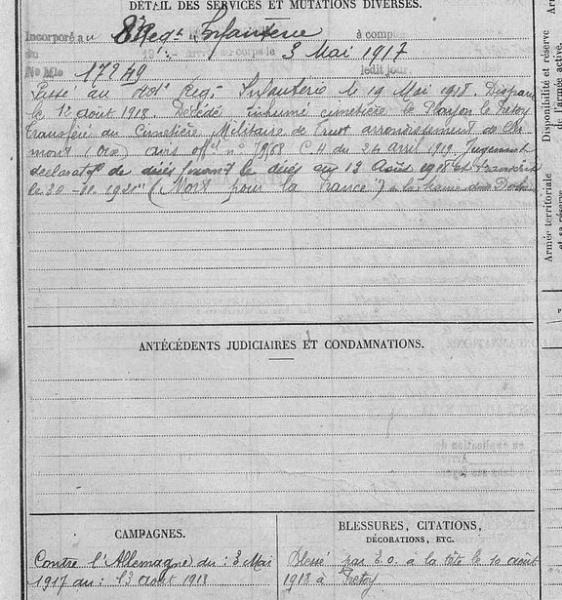 DÉTAIL DES SERVICES ET MUTATIONS DIVERSES.
Incorporé au Régt Infanterie à compter
du 3 Mai 1917
No Mle 17249 ledit jour
Passé au Rég. Infanterie le 19 Mai 1918. Disparu
le août 1918. Décédé inhumé cimetière le Ployon le Fretoy
transféré du Cimetière Militaire de arrondissement de
(Oise) avis offel no 7968 C.H du 24 Avril 1919. Jugement
déclaratif de décès fixant le décès au 13 Août 1918 et transcrit
le 30 (Mort pour la France) à la Mairie
ANTÉCÉDENTS JUDICIAIRES ET CONDAMNATIONS.
CAMPAGNES.
Contre l'Allemagne du : 3 Mai
1917 au : 13 août 1918
BLESSURES, CITATIONS,
DÉCORATIONS, ETC.
Blessé par E.O. à la tête le 10 août
1918 à Fretoy
Disponibilité et réserve
de l'armée active.
Armée territoriale
et sa réserve